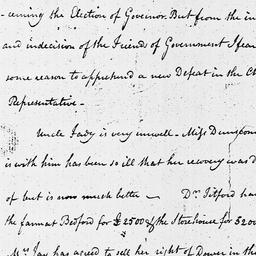 -cerning the Election of Governor. But from the in
and indecision of the Friend of Government I fear
some reason to apprehend a new Defeat in the Ch
Representative -
Uncle Fady is very unwell - Miss
is with him has been so ill that her recovery was d
of but is now much better — Dr. Titford has
the farm at Bedford for £2500 & the Storehouse for 5200
Mrs. Jay has agreed to sell her right of Dower in the